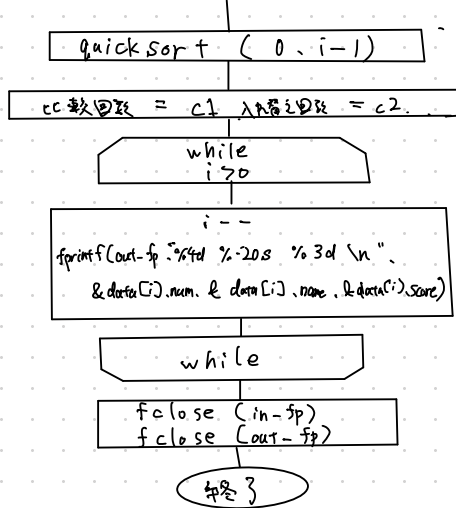 quicksort ( 0、i-1)
比較回数 = c1 入れ替え回数 = c2.
while
i>0
i--
fprintf(out-fp、"%4d %-20s %3d \n"、
&data[i].num、& data[i].name、&data[i].score)
while
fclose (in-fp)
fclose (out-fp)
終了